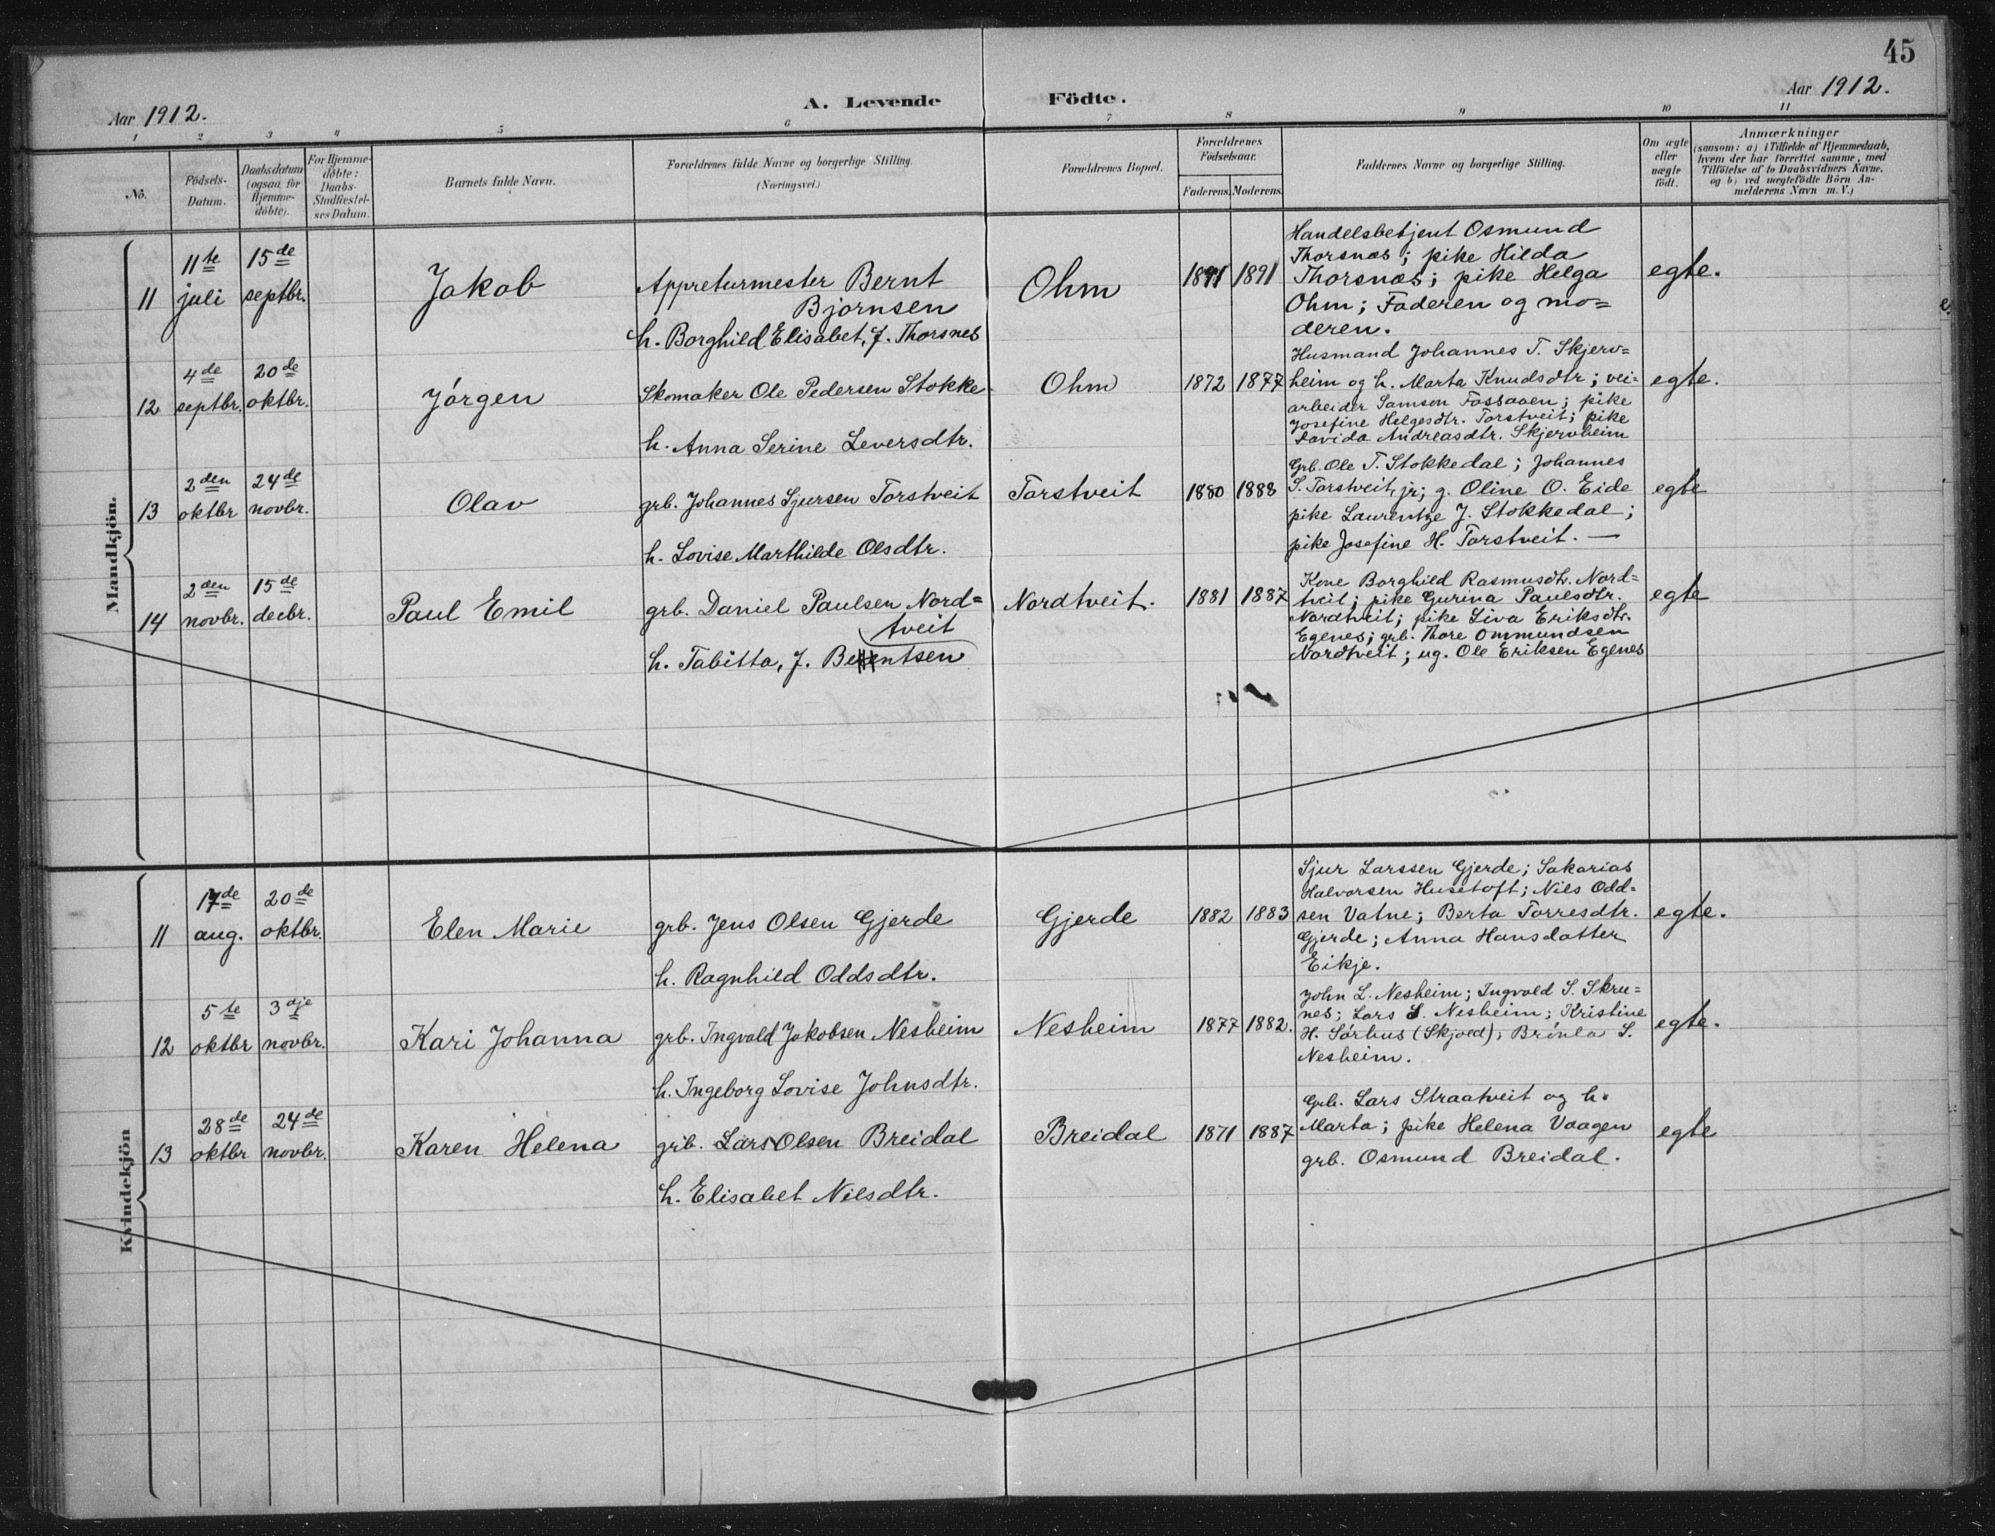 45
Aar 1912.
A. Levende Födte.
Aar 1912.
1 2 3 4 5 6 7 8 9 10 11
No.
Födsels-Datum.
Daabsdatum (ogsaa for Hjemme-döbte).
For Hjemme-döbte: Daabs-Stadfæstel-ses Datum.
Barnets fulde Navn.
Forældrenes fulde Navne og borgerlige Stilling.
(Næringsvei.)
Forældrenes Bopæl.
Forældrenes Födselsaar.
Faderens. Moderens.
Faddernes Navne og borgerlige Stilling.
Om ægte eller uægte födt.
Anmærkninger
(saasom: a) i Tilfælde af Hjemmedaab,
hvem der har forrettet samme, med
Tilföielse af to Daabsvidners Navne.
og b) ved uægtefödte Börn An-
melderens Navn m. V.)
Mandkjön.
11 11te juli 15de septbr. Jakob
Appreturmester Bernt
Bjørnsen
h. Borghild Elisabet, f. Thorsnes
Ohm 1891 egte.
Handelsbetjent Osmund
Thorsnæs; pike Hilda
Thorsnæs; pike Helga
Ohm; Faderen og mo=
deren.
12 4de septbr. 20de oktbr. Jørgen
Skomaker Ole Pedersen Stokke
h. Anna Serine Seversdtr.
Ohm 1872 1877 egte.
Husmand Johannes T. Skjerv=
heim og h. Marta Knudsdtr; vei=
arbeider Samson Fossaaen; pike
Josefine Helgesdtr. Torstveit; pike
Davida Andreasdtr. Skjervheim
13 2den oktbr 24de novbr. Olav
grb. Johannes Sjursen Torstveit
h. Lovise Marthilde Olsdtr.
Torstveit 1880 1888 egte
Grb. Ole T. Stokkedal; Johannes
S. Torstveit, jr; g. Oline O. Eide
pike Laurentze J. Stokkedal;
pike Josefine H. Torstveit. —
14 2den novbr. 15de decbr. Paul Emil
grb. Daniel Paulsen Nord=
tveit
h. Tabitta, f. Berentsen
Nordtveit. 1881 1887 egte
Kone Borghild Rasmusdtr. Nord=
tveit; pike Gurina Paulsdtr.
Nordtveit; pike Liva Eriksdtr.
Egenes; grb. Thore Ommundsen
Nordtveit; ug. Ole Eriksen Egenes
Kvindekjön
11 17de aug. 20de oktbr. Elen Marie
grb. Jens Olsen Gjerde
h. Ragnhild Oddsdtr.
Gjerde 1882 1883 egte.
Sjur Larssen Gjerde; Sakarias
Halvorsen Husetoft; Nils Odd=
sen Vatne; Berta Torresdtr.
Gjerde; Anna Hansdatter
Eikje.
12 5te oktbr 3dje novbr. Kari Johanna
grb. Ingvald Jakobsen Nesheim
h. Ingeborg Lovise Johnsdtr.
Nesheim 1877 1882. egte.
John L. Nesheim; Ingvald S. Skru=
nes; Lars S. Nesheim; Kristine
H. Sørhus (Skjold); Brinla S.
Nesheim.
13 28de oktbr 24de novbr. Karen Helena
grb. Lars Olsen Breidal
h. Elisabet Nilsdtr.
Breidal 1871 1887 egte
Grb. Lars Straatveit og h.
Marta; pike Helena Vaagen
grb. Osmund Breidal.